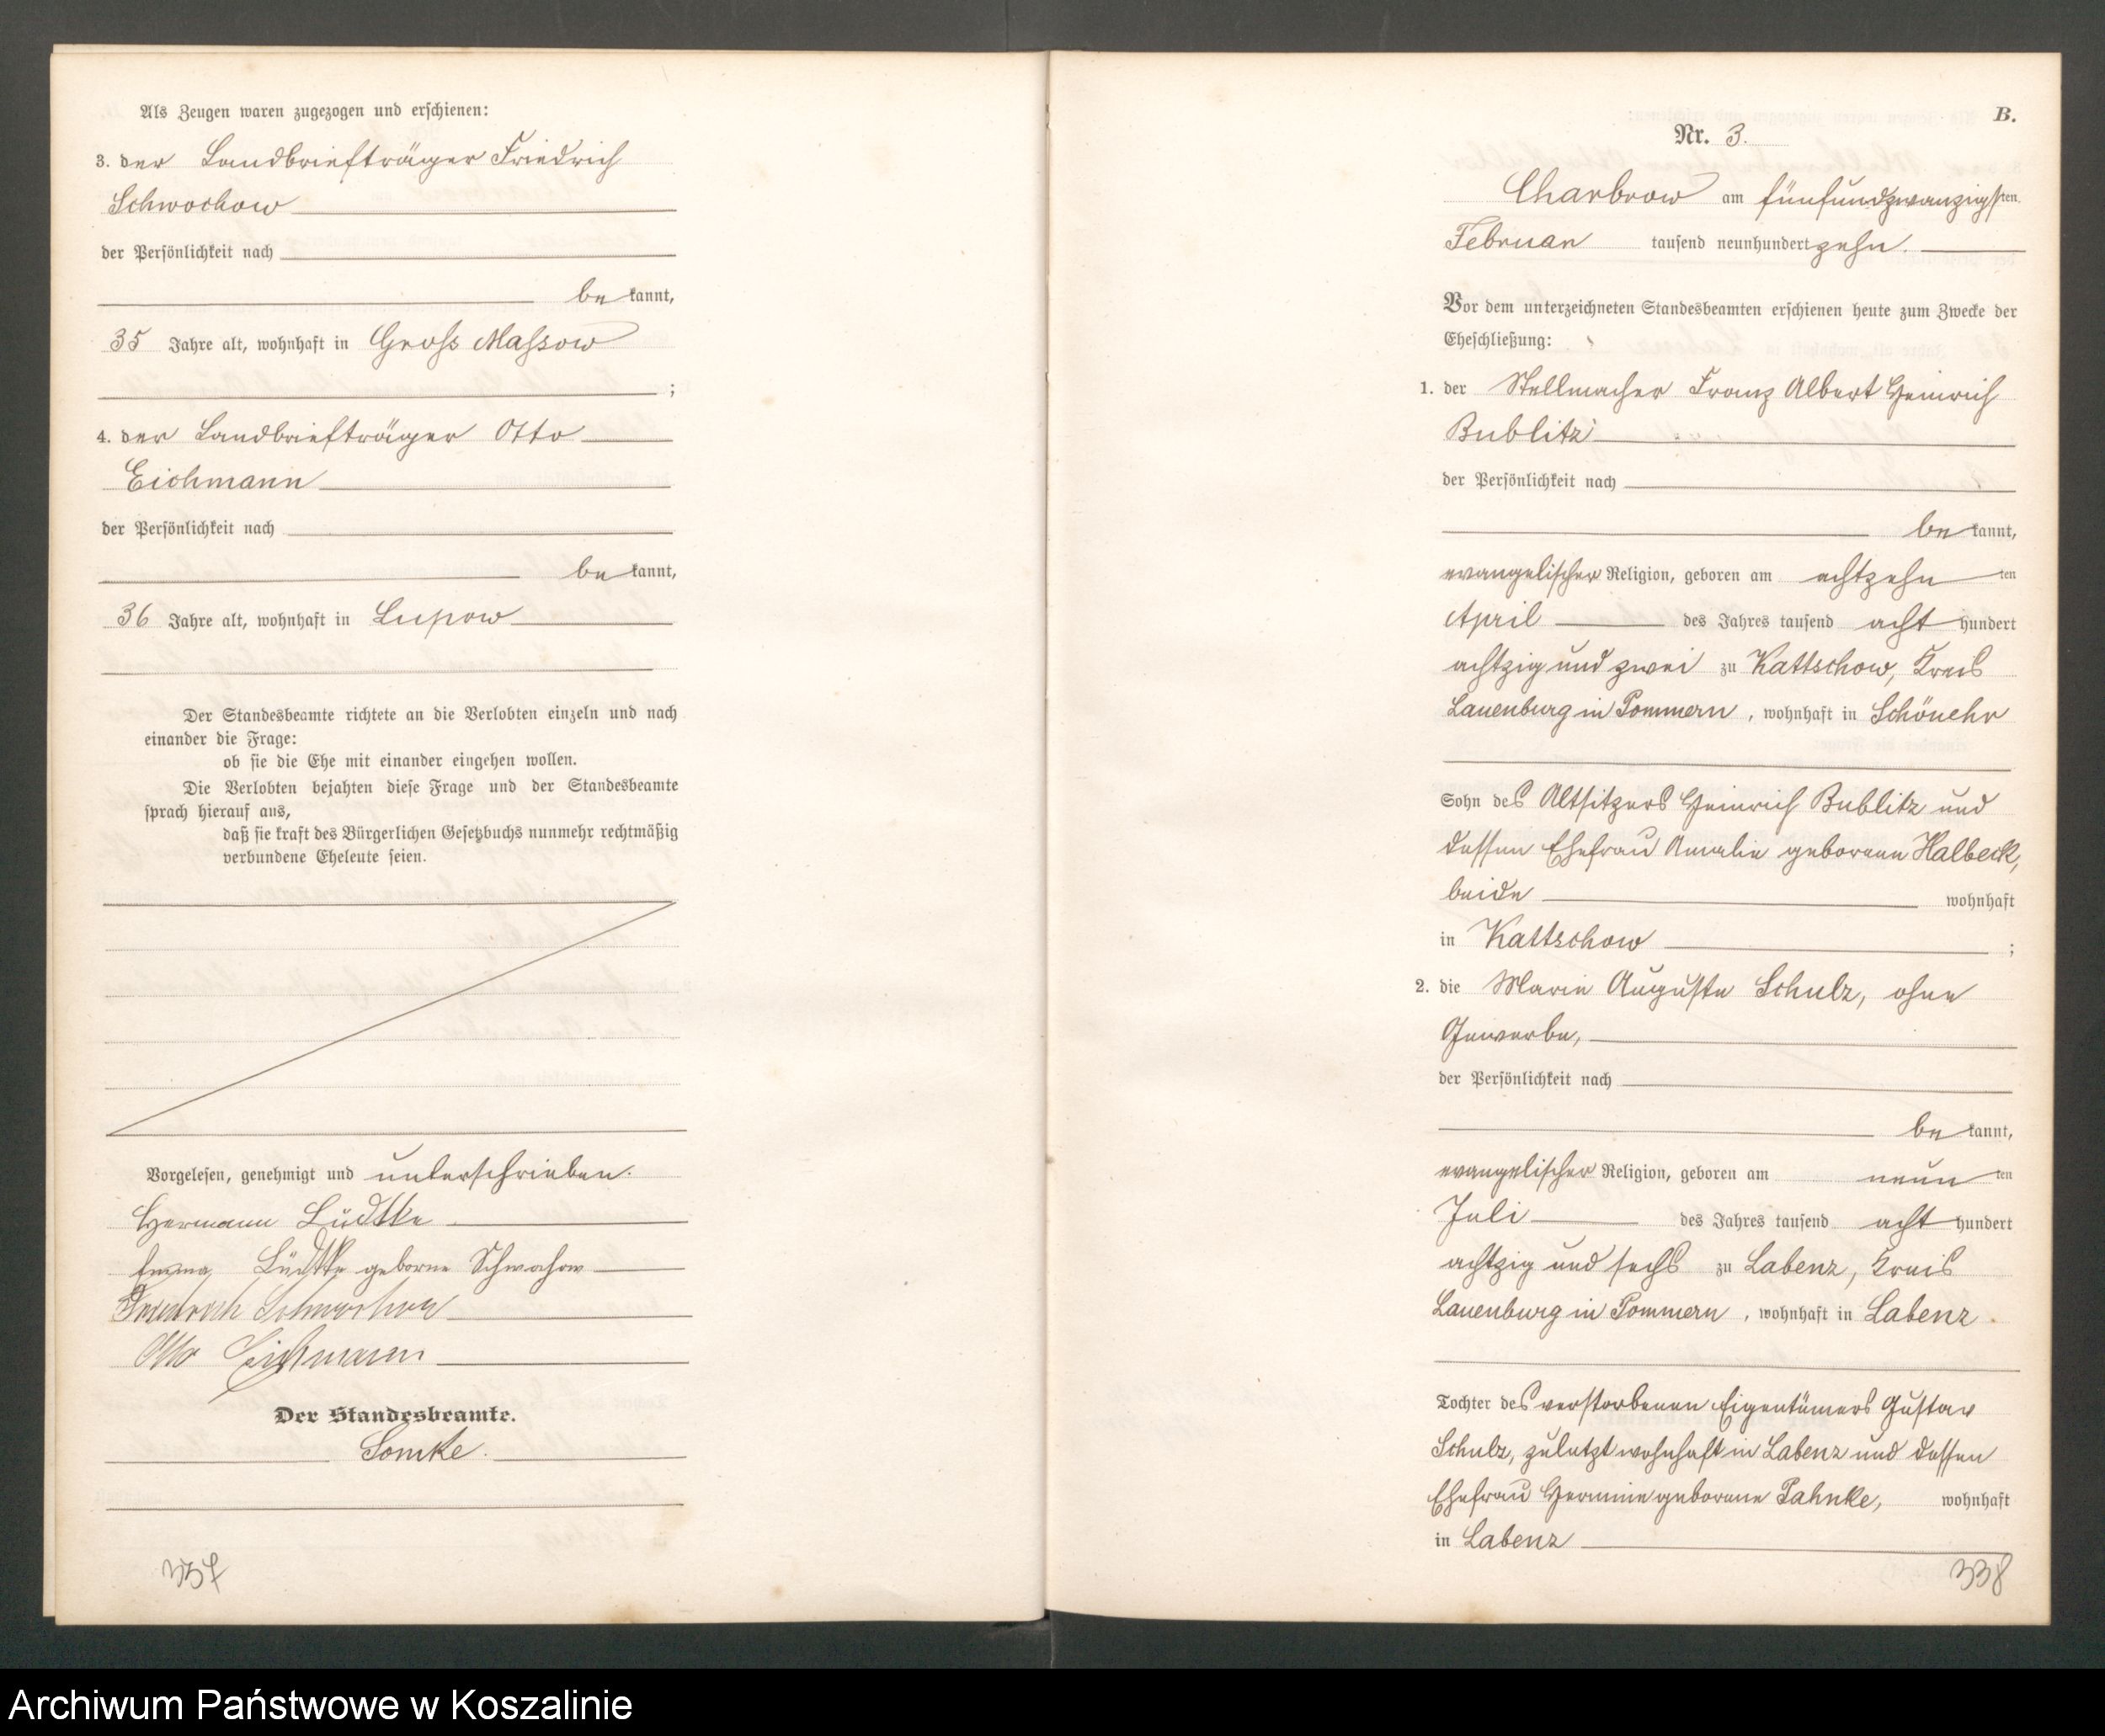 Als Zeugen waren zugezogen und erschienen:
3. der Landbriefträger Friedrich
Schwochow
der Persönlichkeit nach
be kannt,
35 Jahre alt, wohnhaft in Gross Massow
;
4. der Landbriefträger Otto
Eichmann
der Persönlichkeit nach
be kannt,
36 Jahre alt, wohnhaft in Lupow
Der Standesbeamte richtete an die Verlobten einzeln und nach
einander die Frage:
ob sie die Ehe mit einander eingehen wollen.
Die Verlobten bejahten diese Frage und der Standesbeamte
sprach hierauf aus,
daß sie kraft des Bürgerlichen Gesetzbuchs nunmehr rechtmäßig
verbundene Eheleute seien.
Vorgelesen, genehmigt und unterschrieben.
Hermann Lüdtke
Emma Lüdtke geborne Schwochow
Friedrich Schwochow
Otto Eichmann
Der Standesbeamte.
337
B.
Nr. 3.
Charbrow am fünfundzwanzigsten
Februar tausend neunhundert zehn.
Vor dem unterzeichneten Standesbeamten erschienen heute zum Zwecke der
Eheschließung:
1. der Stellmacher Franz Albert Heinrich
Bublitz
der Persönlichkeit nach
be kannt,
evangelischer Religion, geboren am achtzehn ten
April des Jahres tausend acht hundert
achtzig und zwei zu Kattschow, Kreis
Lauenburg in Pommern, wohnhaft in Schönehr
Sohn des Altsitzers Heinrich Bublitz und
dessen Ehefrau Amalie geborenen Halbeck,
beide wohnhaft
in Kattschow ;
2. die Marie Auguste Schulz, ohne
Gewerbe,
der Persönlichkeit nach
be kannt,
evangelischer Religion, geboren am neun ten
Juli des Jahres tausend acht hundert
achtzig und sechs zu Labenz, Kreis
Lauenburg in Pommern, wohnhaft in Labenz.
Tochter des verstorbenen Eigentümers Gustav
Schulz, zuletzt wohnhaft in Labenz und dessen
Ehefrau Hermine geborene Pahnke, wohnhaft
in Labenz
338
Archiwum Państwowe w Koszalinie